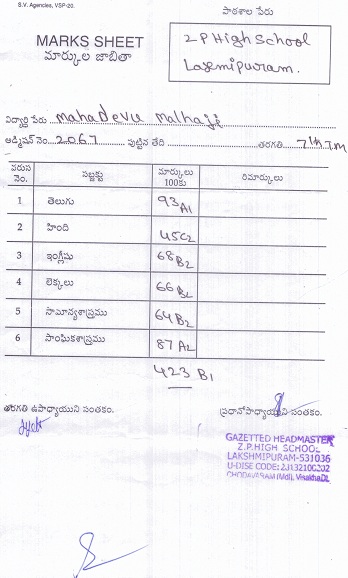 S.V. Agencies, VSP-20.
పాఠశాల పేరు
MARKS SHEET
మార్కుల జాబితా
Z P High School
Laxmipuram.
విద్యార్థి పేరు mahadevu malhaji
అడ్మిషన్ నెం. 2067 పుట్టిన తేది తరగతి 7th T.M
వరుస నెం. సబ్జక్టు మార్కులు 100కు రిమార్కులు
1 తెలుగు 93 A1
2 హింది 45 C2
3 ఇంగ్లీషు 68 B2
4 లెక్కలు 66 B2
5 సామాన్యశాస్త్రము 64 B2
6 సాంఘికశాస్త్రము 87 A2
423 B1
తరగతి ఉపాధ్యాయుని సంతకం. ప్రధానోపాధ్యాయుని సంతకం.
GAZETTED HEADMASTER
Z.P.HIGH SCHOOL
LAKSHMIPURAM-531036
U-DISE CODE: 2813210C202
CHODAVARAM (Mdl), Visakha Dt.